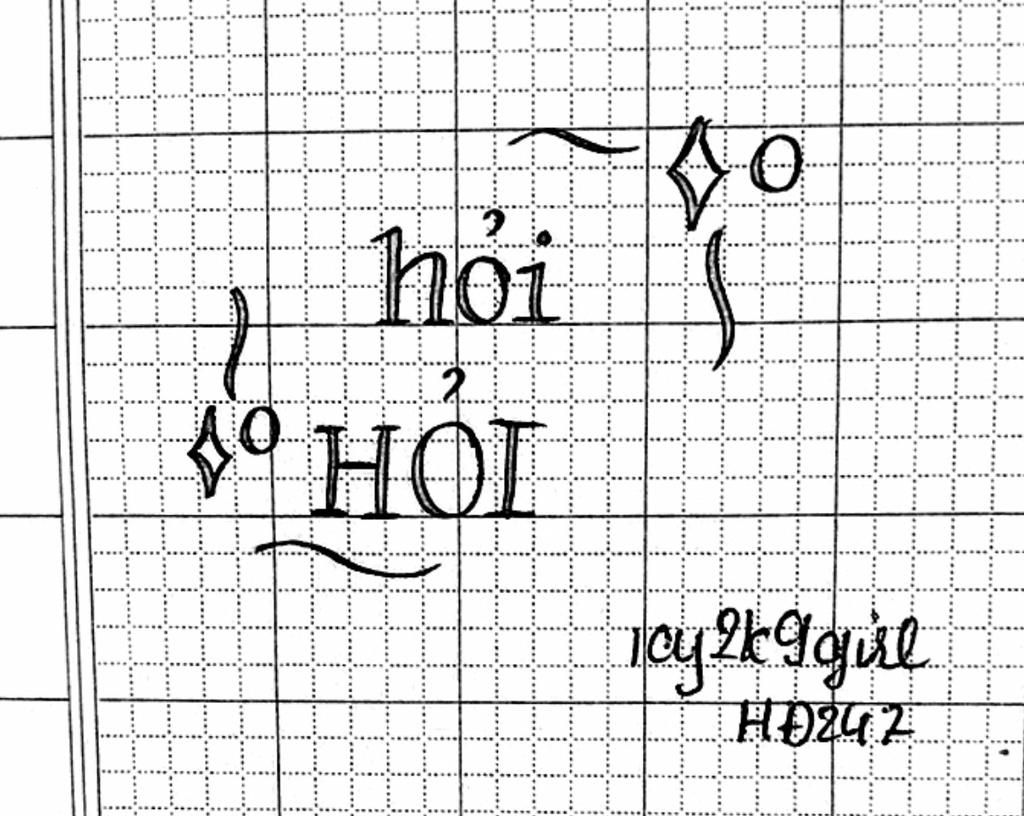 hỏi
HỎI
icy2k9girl
HĐ247